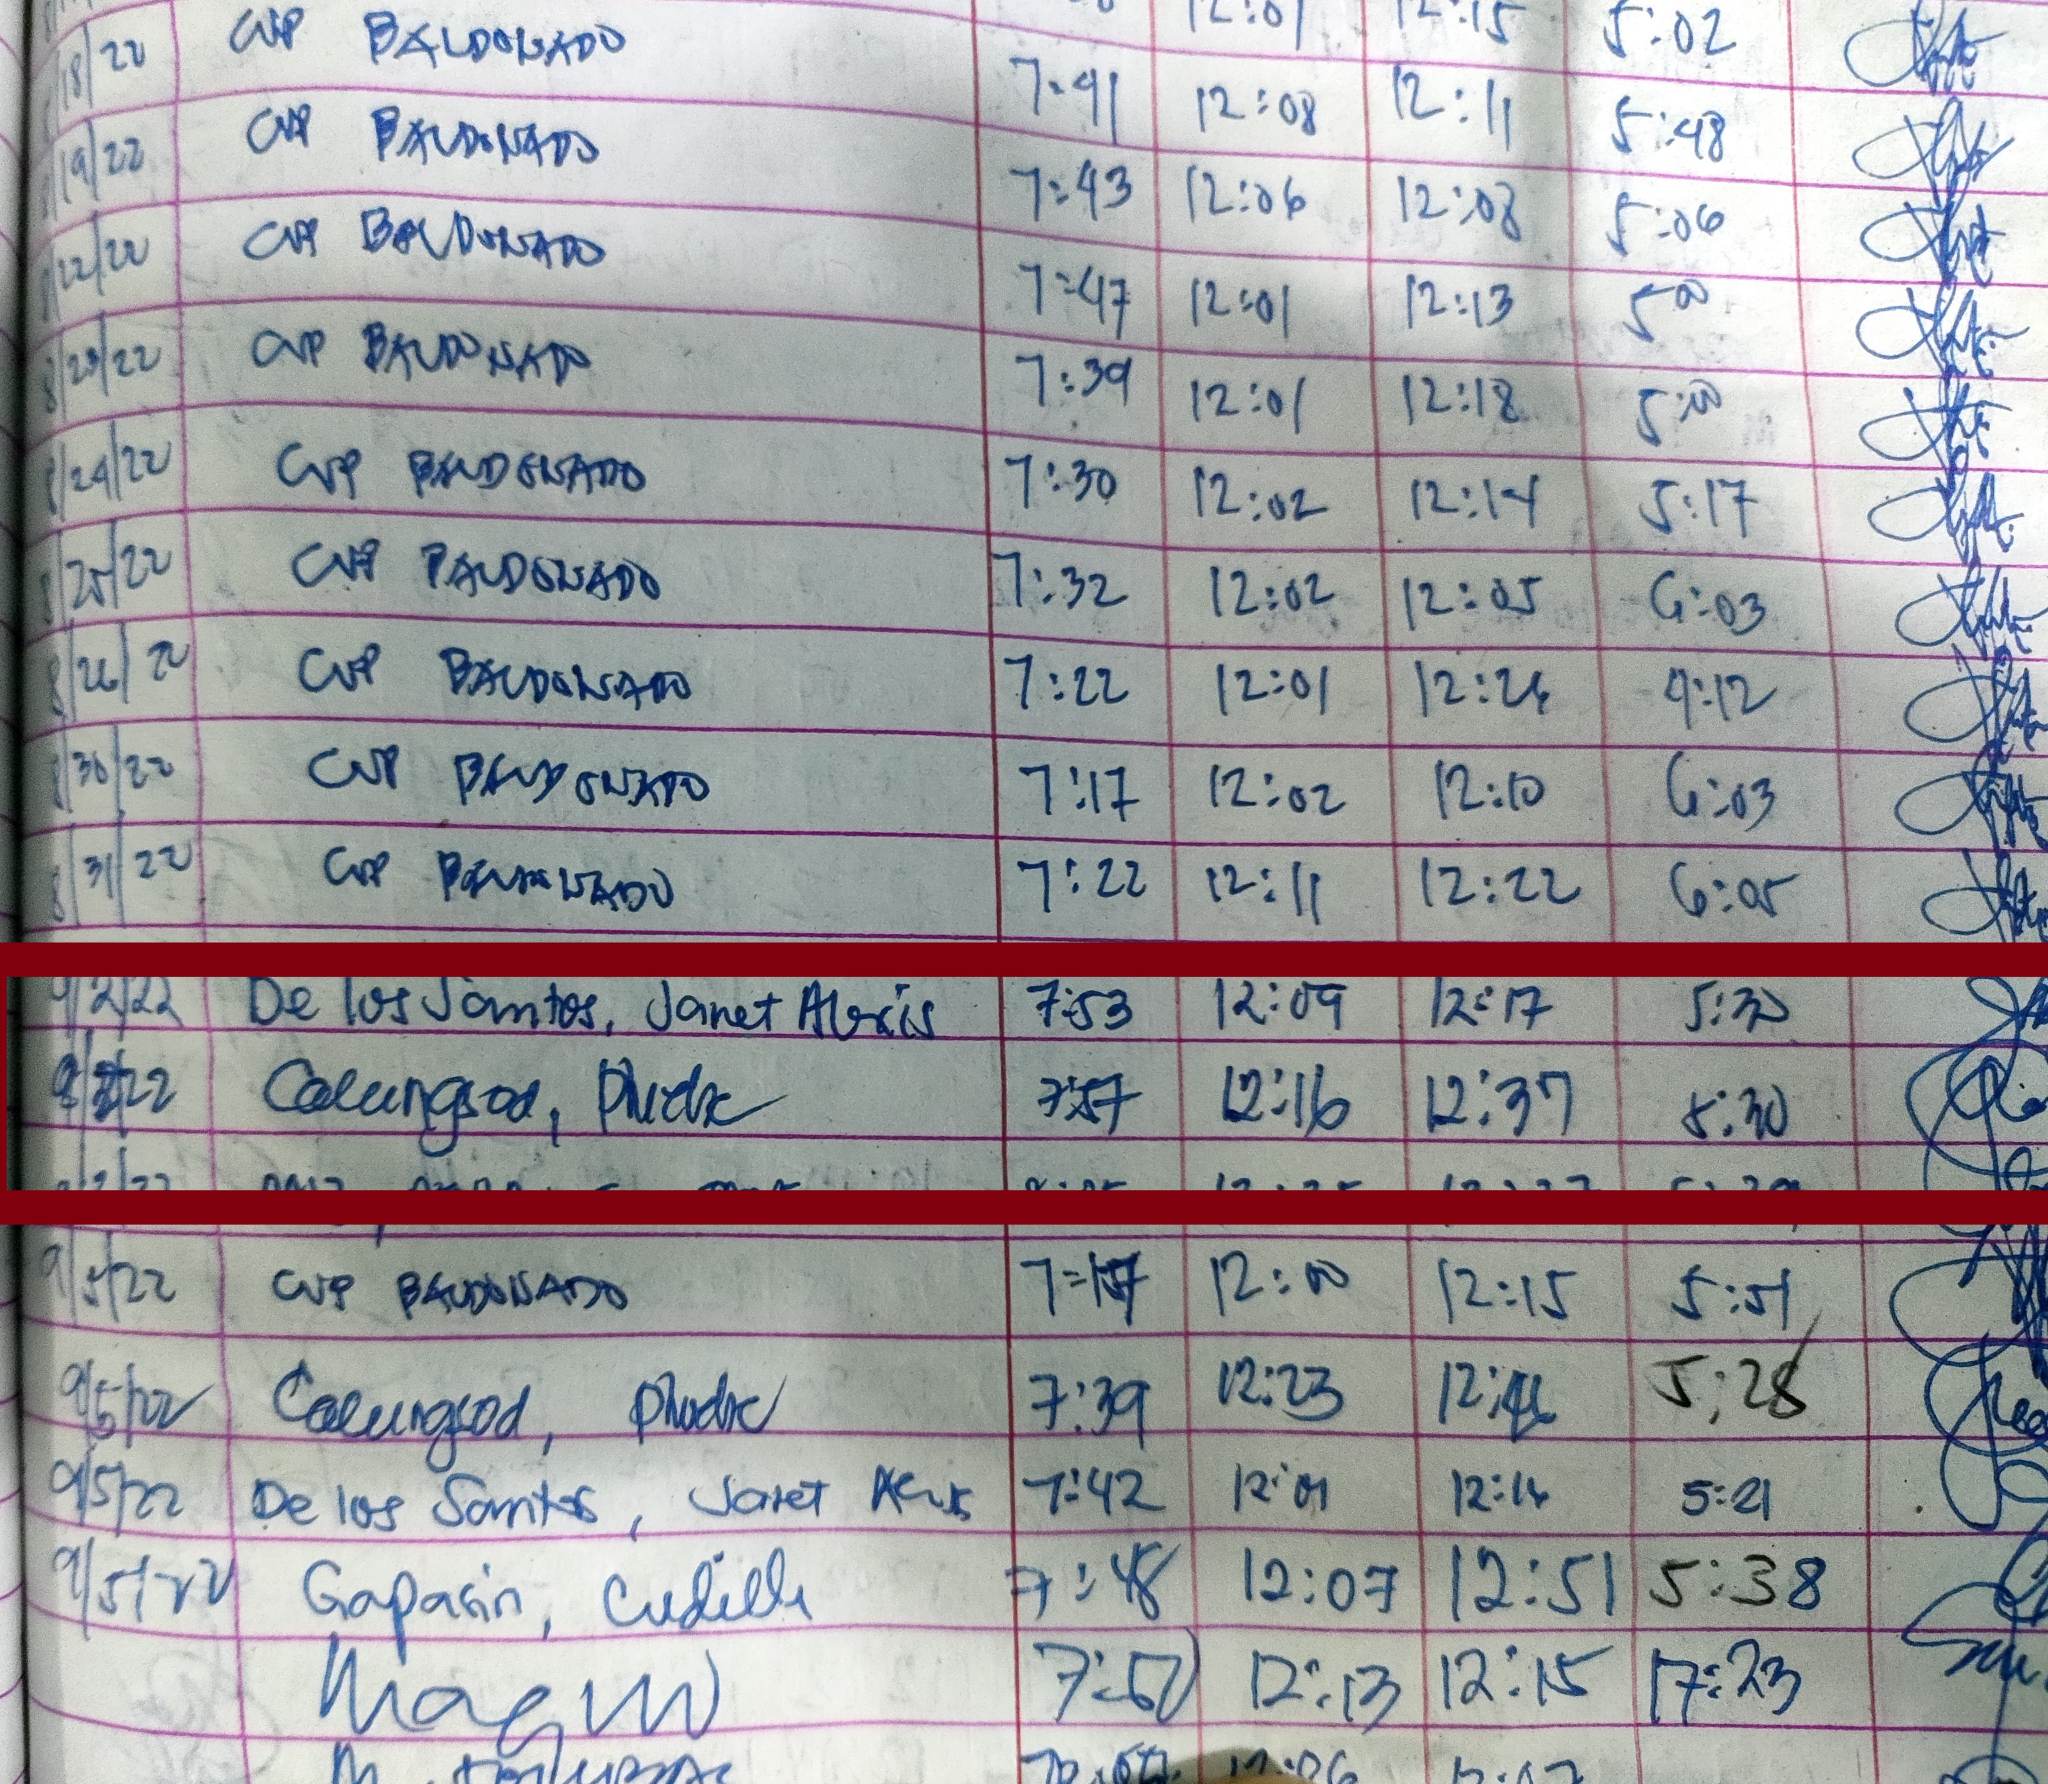 12:01 12:15 5:02
8/18/22 CVP BALDONADO 7:41 12:08 12:11 5:48
8/19/22 CVP BALDONADO 7:43 12:06 12:08 5:06
8/22/22 CVP BALDONADO 7:47 12:01 12:13 5:00
8/23/22 CVP BALDONADO 7:39 12:01 12:18 5:00
8/24/22 CVP BALDONADO 7:30 12:02 12:14 5:17
8/25/22 CVP BALDONADO 7:32 12:02 12:05 6:03
8/26/22 CVP BALDONADO 7:22 12:01 12:26 4:12
8/30/22 CVP BALDONADO 7:17 12:02 12:10 6:03
8/31/22 CVP BALDONADO 7:22 12:11 12:22 6:05
9/2/22 De los Santos, Janet Alexis 7:53 12:09 12:17 5:30
9/2/22 Calungsod, Phudre 7:57 12:16 12:37 5:30
9/5/22 CVP BALDONADO 7:17 12:00 12:15 5:51
9/5/22 Calungsod, Phudre 7:39 12:23 5:28
9/5/22 De los Santos, Janet Alexis 7:42 12:01 12:16 5:21
9/5/22 Gapasin, Cudille 7:48 12:07 12:51 5:38
7:50 12:13 12:15 17:23
12:06 12:07